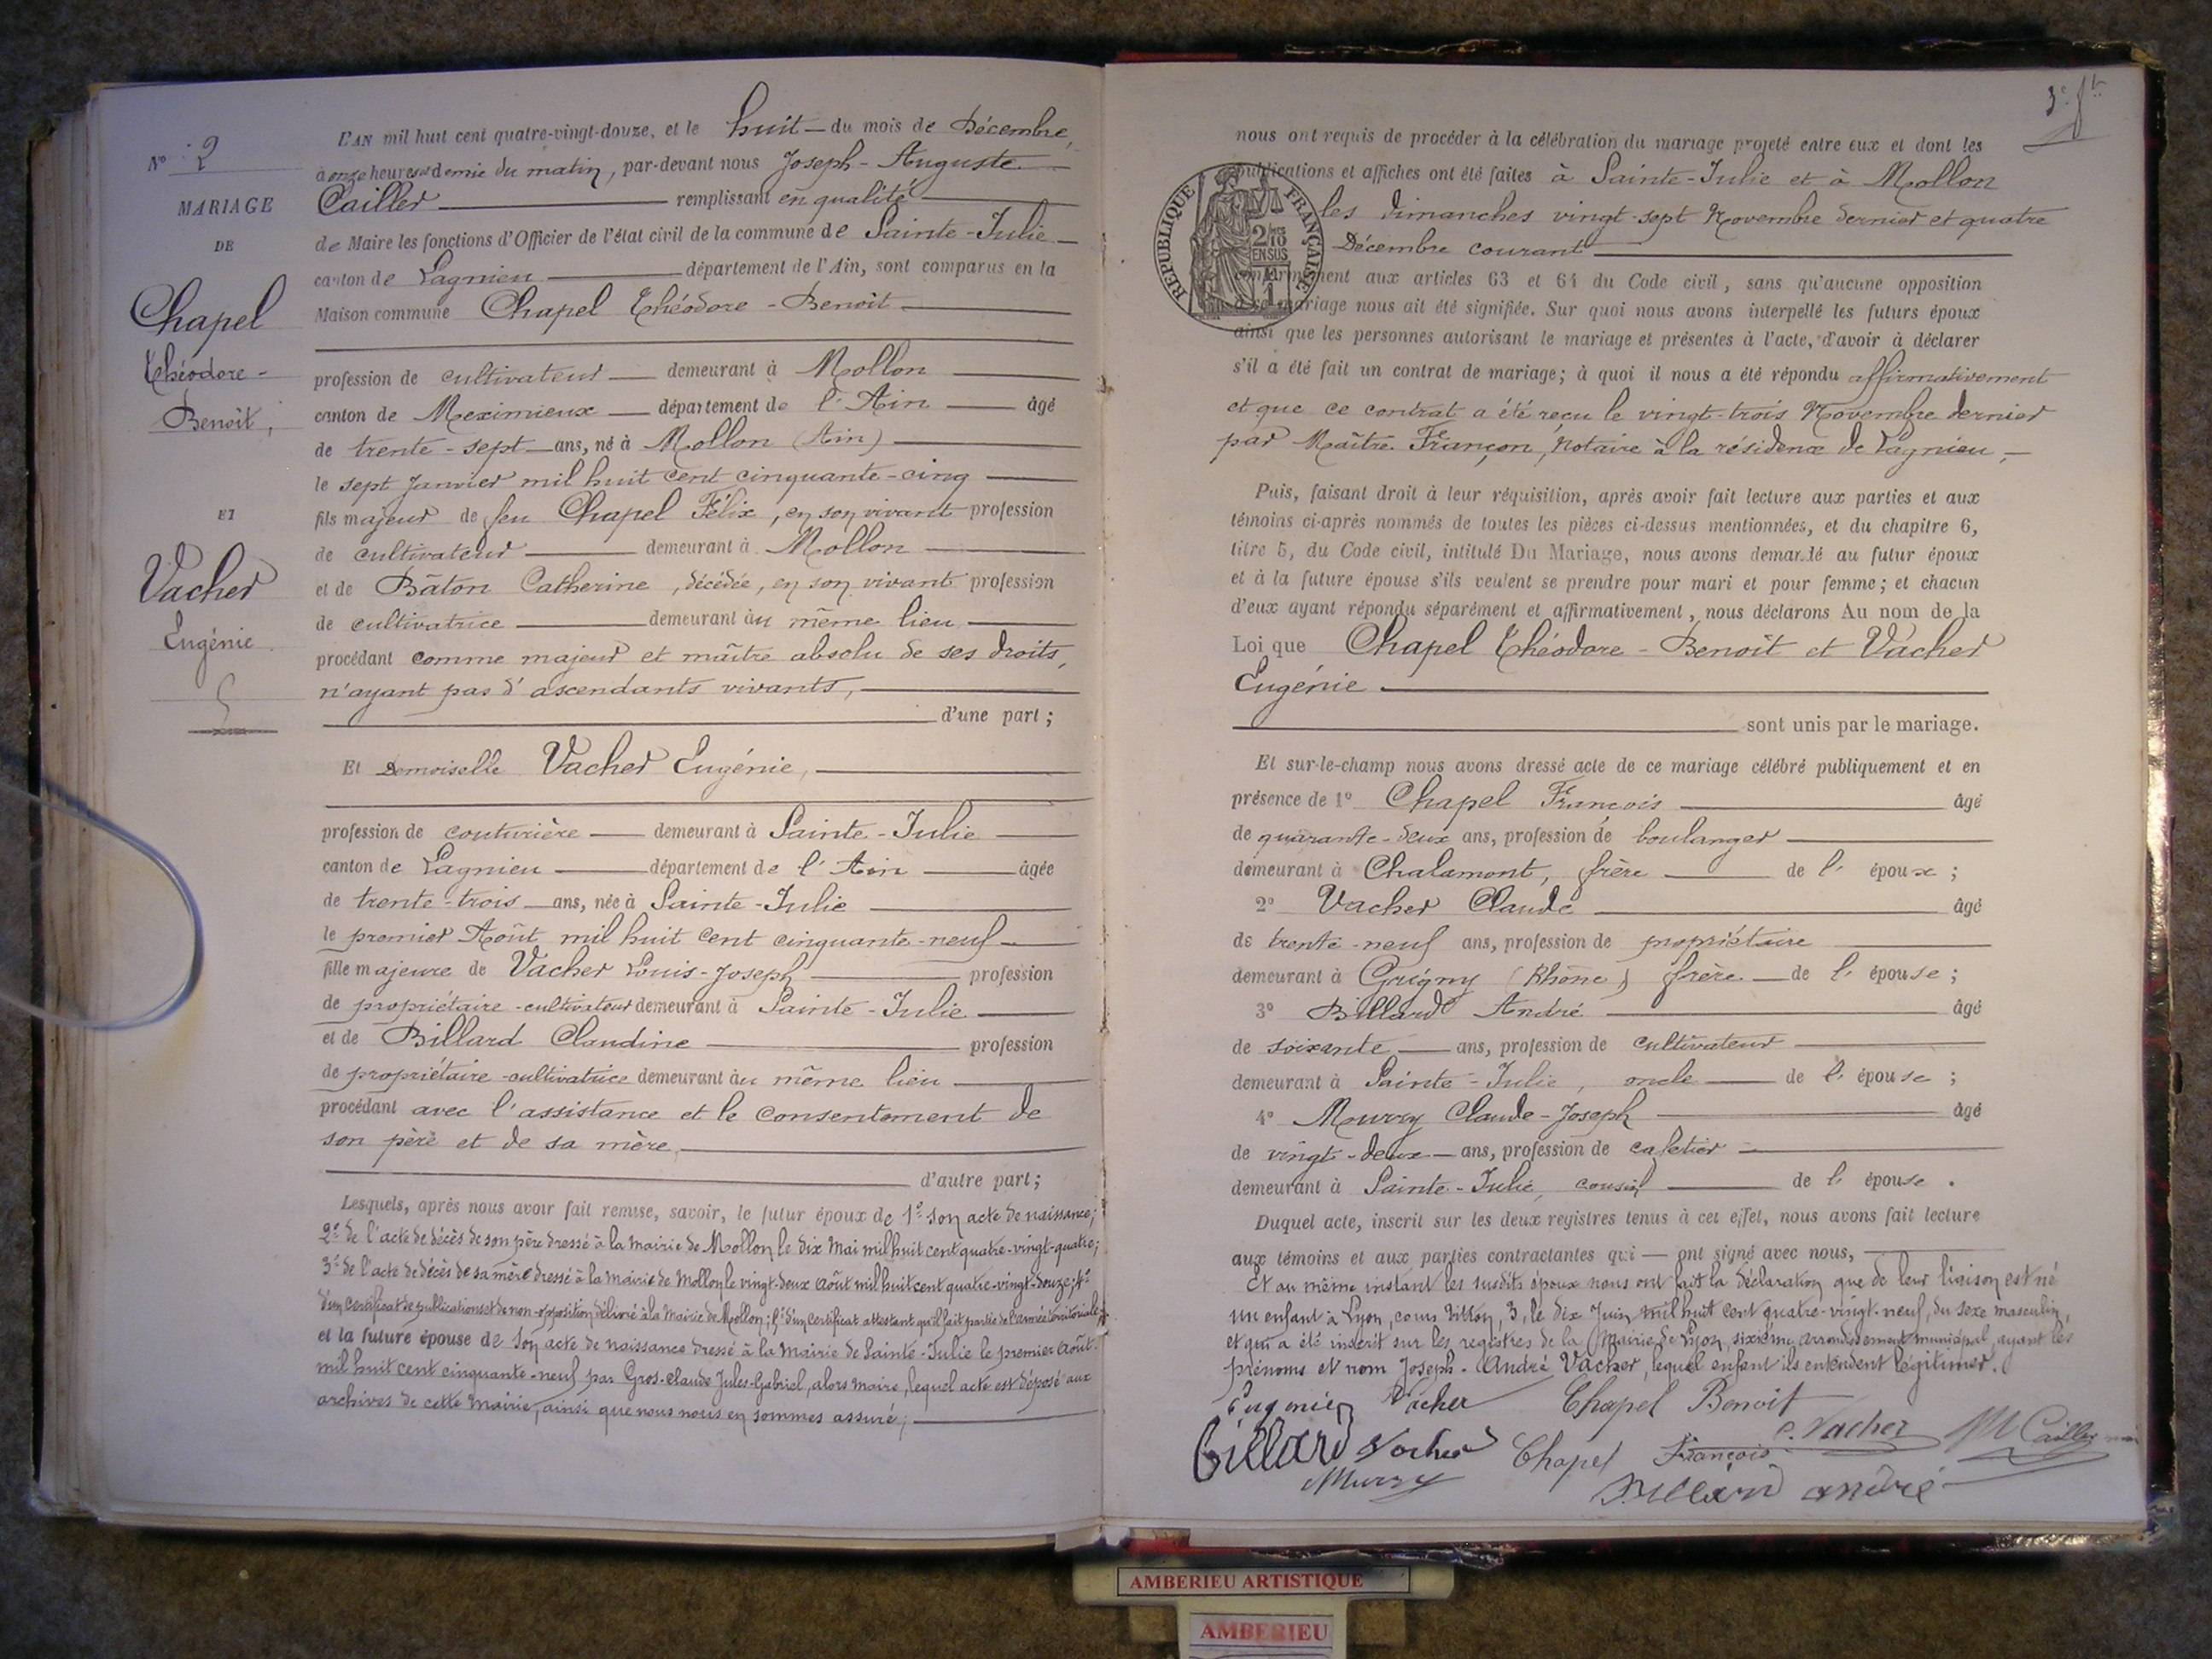 N° 2
MARIAGE
DE
Chapel
Théodore-
Benoit,
ET
Vacher
Eugénie
L'AN mil huit cent quatre-vingt-douze, et le huit du mois de Décembre,
à onze heures et demie du matin, par-devant nous Joseph-Auguste
Cailler remplissant en qualité
de Maire les fonctions d'Officier de l'état civil de la commune de Sainte-Julie
canton de Lagnieu département de l'Ain, sont comparus en la
Maison commune Chapel Théodore-Benoit
profession de cultivateur demeurant à Mollon
canton de Meximieux département de l'Ain âgé
de trente-sept ans, né à Mollon (Ain)
le sept Janvier mil huit cent cinquante-cinq
fils majeur de feu Chapel Félix, en son vivant profession
de cultivateur demeurant à Mollon
et de Bâton Catherine, décédée, en son vivant profession
de cultivatrice demeurant au même lieu
procédant comme majeur et maître absolu de ses droits,
n'ayant pas d'ascendants vivants,
d'une part ;
Et Demoiselle Vacher Eugénie,
profession de couturière demeurant à Sainte-Julie
canton de Lagnieu département de l'Ain âgée
de trente-trois ans, née à Sainte-Julie
le premier Août mil huit cent cinquante-neuf
fille majeure de Vacher Louis-Joseph profession
de propriétaire-cultivateur demeurant à Sainte-Julie
et de Billard Claudine profession
de propriétaire-cultivatrice demeurant au même lieu
procédant avec l'assistance et le consentement de
son père et de sa mère
d'autre part ;
Lesquels, après nous avoir fait remise, savoir, le futur époux de 1° son acte de naissance ;
2° de l'acte de décès de son père dressé à la mairie de Mollon le dix Mai mil huit cent quatre-vingt-quatre ;
3° de l'acte de décès de sa mère dressé à la mairie de Mollon le vingt-deux Août mil huit cent quatre-vingt-douze ; 4°
d'un certificat de publications et de non-opposition, délivré à la mairie de Mollon ; 5° d'un certificat attestant qu'il fait partie de l'armée territoriale ;
et la future épouse de son acte de naissance dressé à la Mairie de Sainte-Julie le premier Août
mil huit cent cinquante-neuf par Gros-Claude Jules-Gabriel, alors maire, lequel acte est déposé aux
archives de cette Mairie, ainsi que nous nous en sommes assuré ;
3e
nous ont requis de procéder à la célébration du mariage projeté entre eux et dont les
publications et affiches ont été faites à Sainte-Julie et à Mollon
les dimanches vingt-sept Novembre dernier et quatre
Décembre courant
RÉPUBLIQUE FRANÇAISE
2/10
EN SUS
1
conformément aux articles 63 et 64 du Code civil, sans qu'aucune opposition
à ce mariage nous ait été signifiée. Sur quoi nous avons interpellé les futurs époux
ainsi que les personnes autorisant le mariage et présentes à l'acte, d'avoir à déclarer
s'il a été fait un contrat de mariage ; à quoi il nous a été répondu affirmativement
et que ce contrat a été reçu le vingt-trois Novembre dernier
par Maître Françon, Notaire à la résidence de Lagnieu,
Puis, faisant droit à leur réquisition, après avoir fait lecture aux parties et aux
témoins ci-après nommés de toutes les pièces ci-dessus mentionnées, et du chapitre 6,
titre 5, du Code civil, intitulé Du Mariage, nous avons demandé au futur époux
et à la future épouse s'ils veulent se prendre pour mari et pour femme ; et chacun
d'eux ayant répondu séparément et affirmativement, nous déclarons Au nom de la
Loi que Chapel Théodore-Benoit et Vacher
Eugénie
sont unis par le mariage.
Et sur-le-champ nous avons dressé acte de ce mariage célébré publiquement et en
présence de 1° Chapel François âgé
de quarante-deux ans, profession de boulanger
demeurant à Chalamont, frère de l'époux ;
2° Vacher Claude âgé
de trente-neuf ans, profession de propriétaire
demeurant à Grigny (Rhône) frère de l'épouse ;
3° Billard André âgé
de soixante ans, profession de cultivateur
demeurant à Sainte-Julie, oncle de l'épouse ;
4° Murry Claude-Joseph âgé
de vingt-deux ans, profession de cafetier
demeurant à Sainte-Julie, cousin de l'épouse.
Duquel acte, inscrit sur les deux registres tenus à cet effet, nous avons fait lecture
aux témoins et aux parties contractantes qui ont signé avec nous,
Et au même instant les susdits époux nous ont fait la déclaration que de leur liaison est né
un enfant à Lyon, cours Vitton, 3, le dix Juin mil huit cent quatre-vingt-neuf, du sexe masculin,
et qui a été inscrit sur les registres de la Mairie de Lyon, sixième arrondissement municipal, ayant les
prénoms et nom Joseph-André Vacher, lequel enfant ils entendent légitimer.
Eugénie Vacher Chapel Benoit
Billard Vacher Chapel François C. Vacher Cailler
Murry Billard andré
AMBERIEU ARTISTIQUE
AMBERIEU